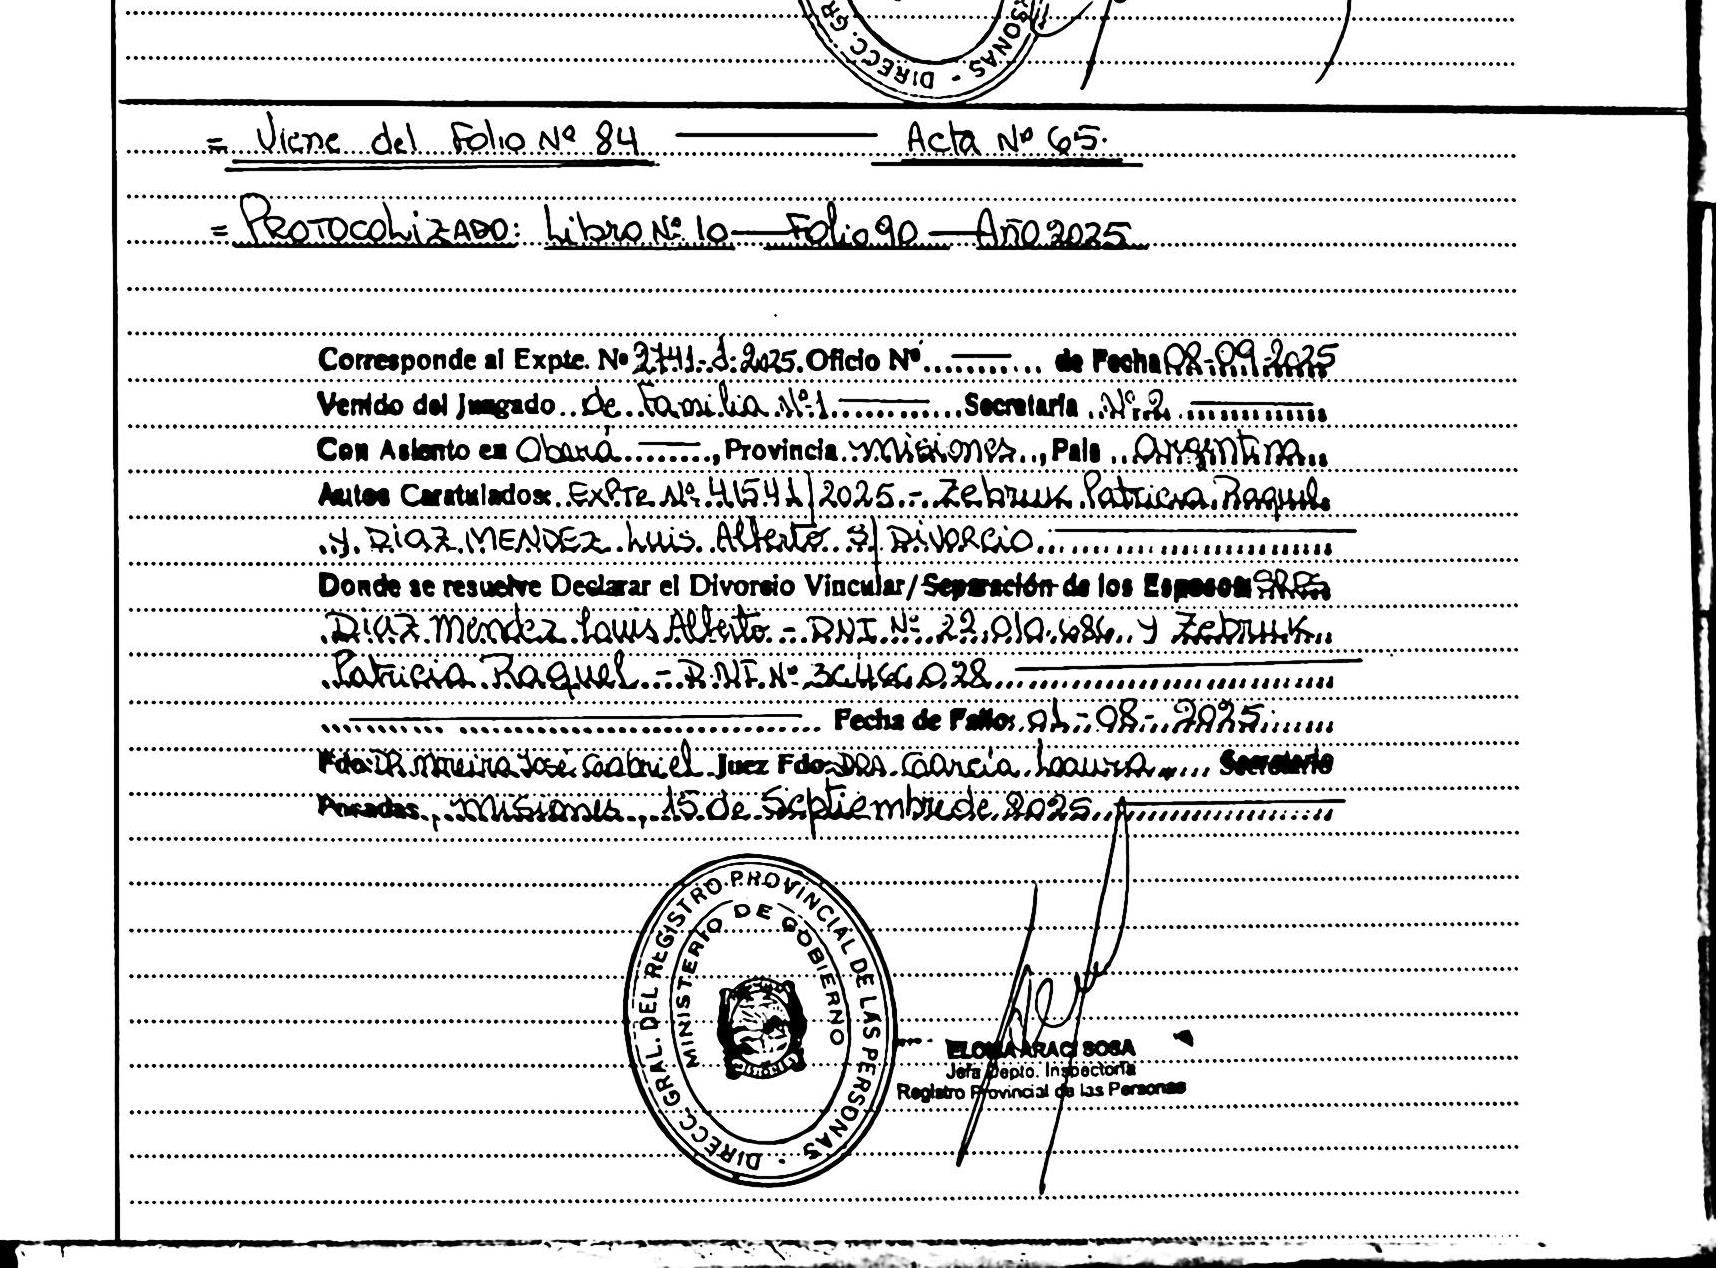 DIRECC. GR
SONAS -
= Viene del Folio Nº 84 ——— Acta Nº 65.
= PROTOCOLIZADO: Libro Nº 10 — Folio 90 — Año 2025
Corresponde al Expte. Nº 2741-J-2025. Oficio Nº ..... de Fecha 08-09-2025
Venido del Juzgado de Familia Nº 1 Secretaría Nº 2
Con Asiento en Oberá, Provincia Misiones, País Argentina
Autos Caratulados: Expte Nº 41541/2025.- Zebruk Patricia Raquel
y DIAZ MENDEZ Luis Alberto S/ DIVORCIO
Donde se resuelve Declarar el Divorcio Vincular/Separación de los Esposos: SRES
DIAZ Mendez Luis Alberto - DNI Nº 22.010.686 y Zebruk
Patricia Raquel - DNI Nº 36.466.028
Fecha de Fallo: 01-08-2025
Fdo: DR. Moreira José Gabriel Juez Fdo: DRA. García Laura Secretario
Posadas, Misiones, 15 de Septiembre de 2025
DIRECC. GRAL. DEL REGISTRO PROVINCIAL DE LAS PERSONAS -
MINISTERIO DE GOBIERNO
ARACI SOSA
Jefa Depto. Inspectoría
Registro Provincial de las Personas